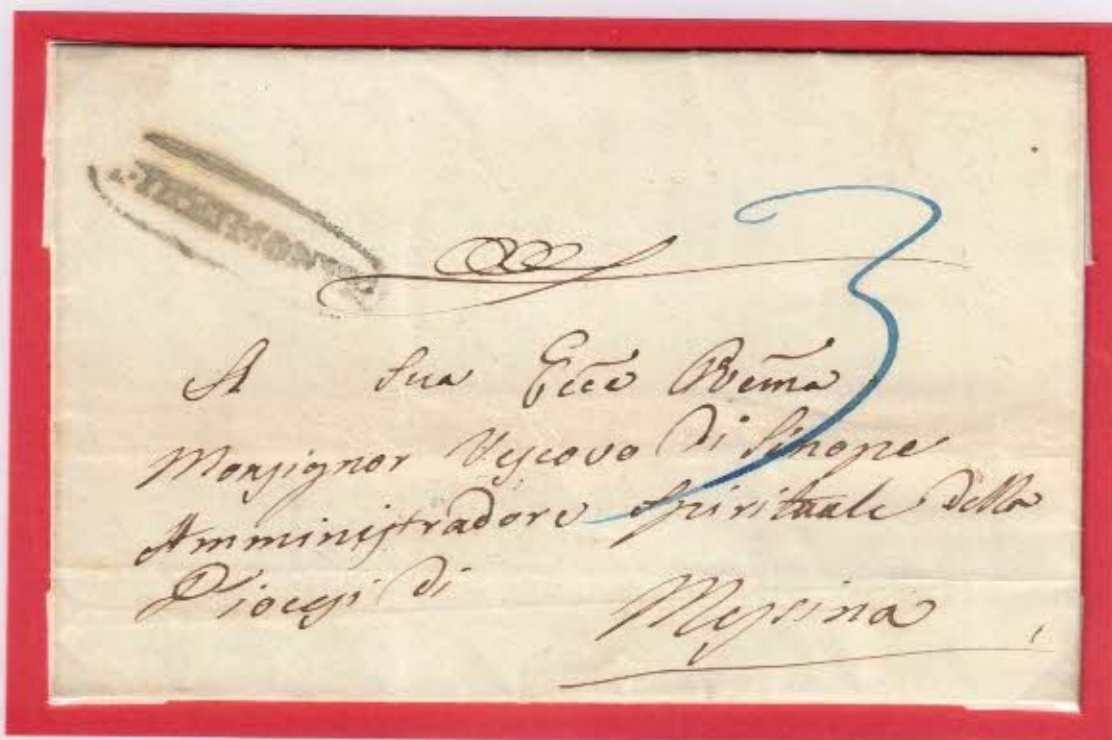 PIEDIMONTE
3
A Sua Ecc̄e Rēma
Monsignor Vescovo Di Sinope
Amministradore Spirituale Della
Diocesi Di Messina